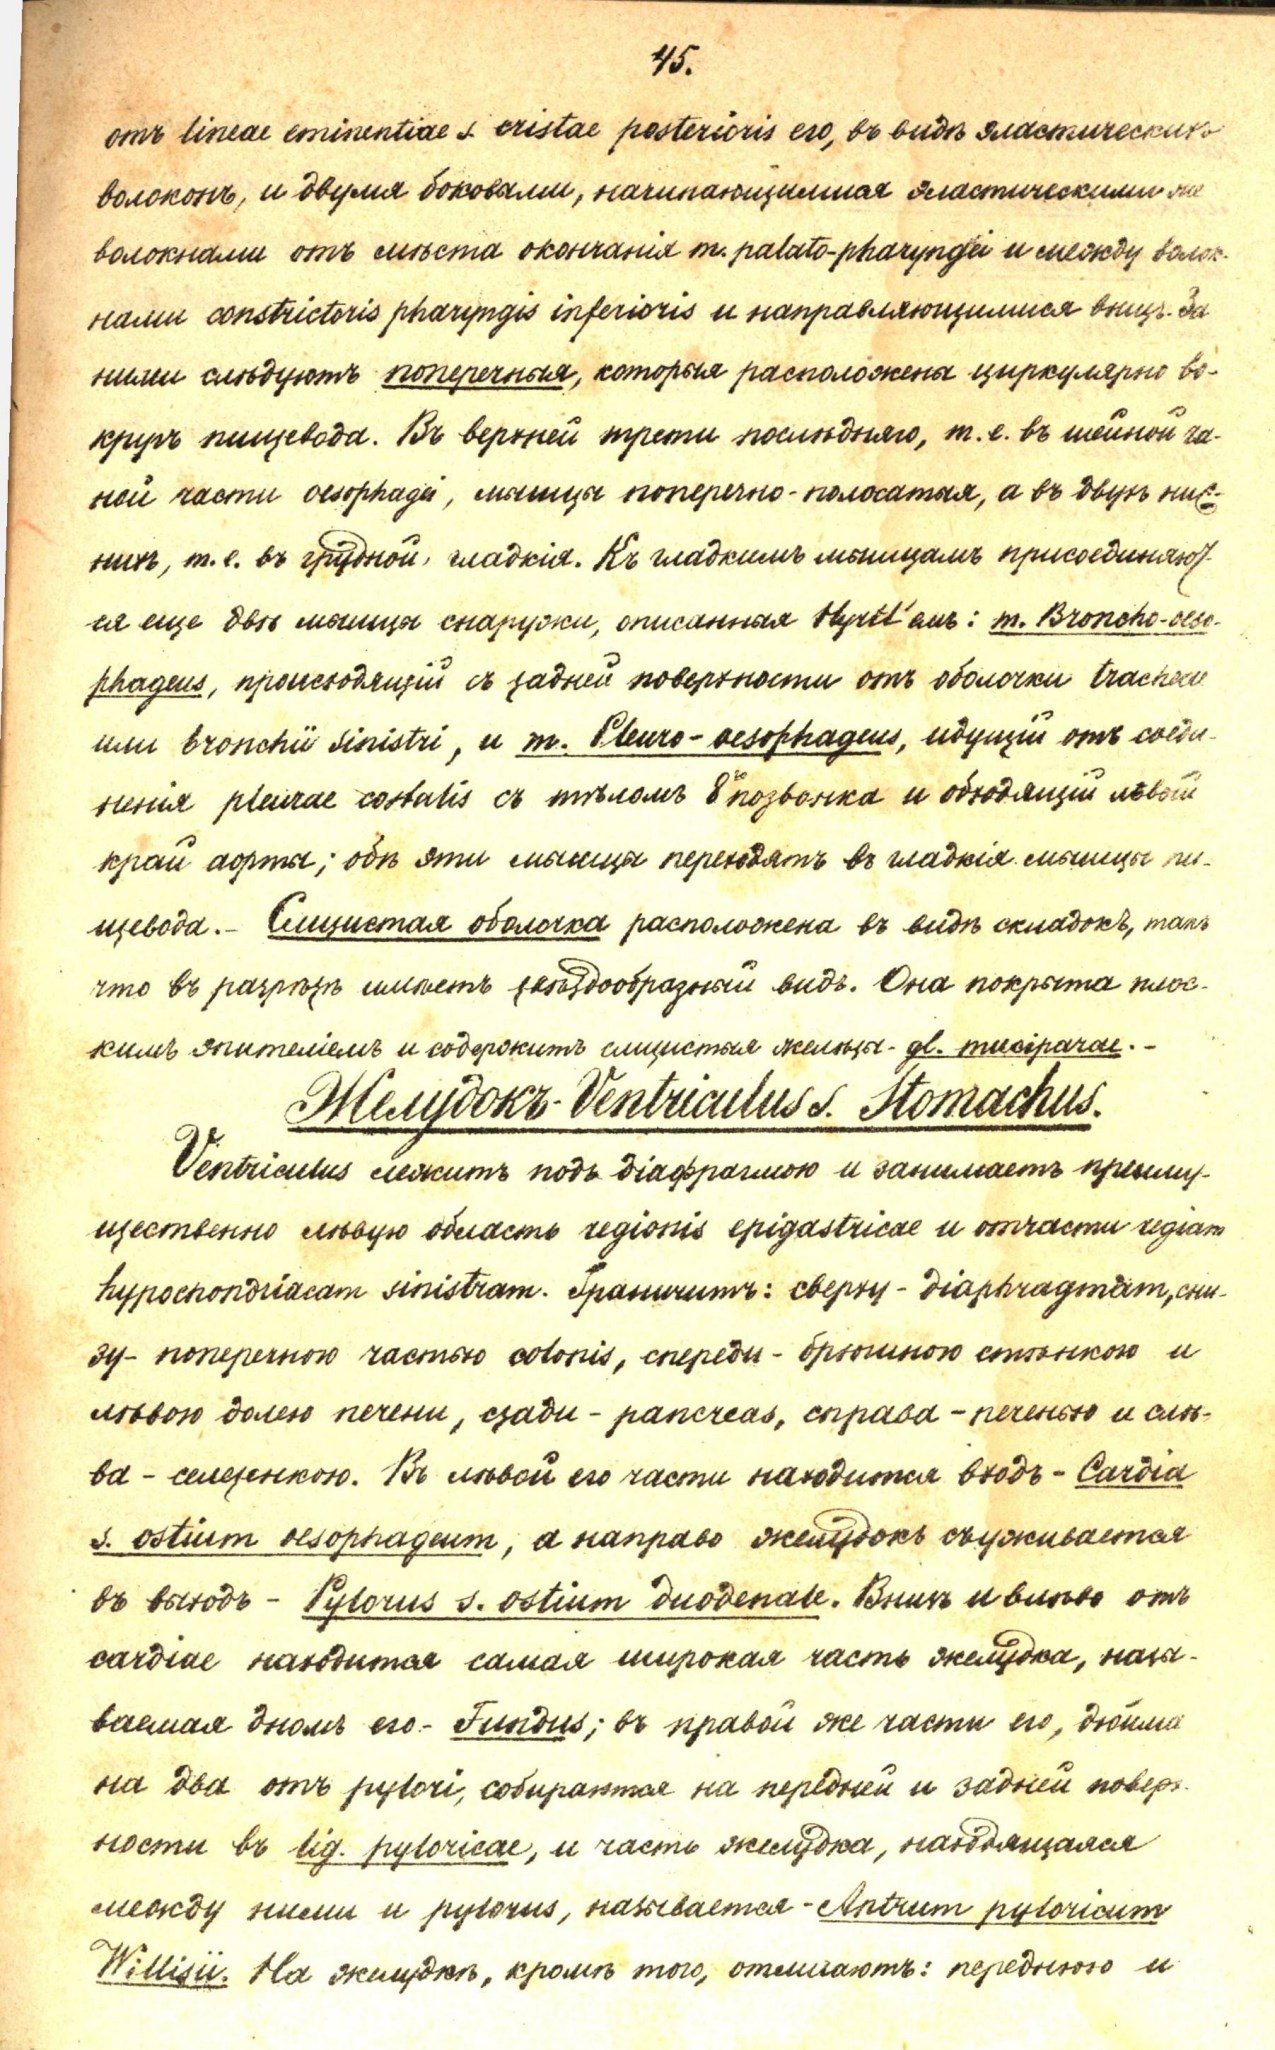 45.
отъ lineae eminentiae s. cristae posterioris его, въ видѣ эластическихъ
волоконъ, и двумя боковыми, начинающимися эластическими же
волокнами отъ мѣста окончанія m. palato-pharyngei и между волок-
нами constrictoris pharyngis inferioris и направляющимися внизъ. За
ними слѣдуютъ поперечныя, которыя расположены циркулярно во-
кругъ пищевода. Въ верхней трети послѣдняго, т. е. въ шейной ча-
ной части oesophagei, мышцы поперечно-полосатыя, а въ двухъ ниж-
нихъ, т. е. въ грудной, гладкія. Къ гладкимъ мышцамъ присоединяют-
ся еще двѣ мышцы снаружи, описанныя Hyrtl'емъ: m. Broncho-oeso-
phageus, происходящій съ задней поверхности отъ оболочки tracheae
или bronchii sinistri, и m. Pleuro-oesophageus, идущій отъ соеди-
ненія pleurae costalis съ тѣломъ 8го позвонка и обходящій лѣвый
край аорты; обѣ эти мышцы переходятъ въ гладкія мышцы пи-
щевода. – Слизистая оболочка расположена въ видѣ складокъ, такъ
что въ разрѣзѣ имѣетъ звѣздообразный видъ. Она покрыта плос-
кимъ эпителіемъ и содержитъ слизистыя железы - gl. muciparae. –
Желудокъ - Ventriculus s. Stomachus.
Ventriculus лежитъ подъ діафрагмою и занимаетъ преиму-
щественно лѣвую область regionis epigastricae и отчасти regiam
hypochondriacam sinistram. Граничитъ: сверху - diaphragmam, сни-
зу - поперечною частью colonis, спереди - брюшною стѣнкою и
лѣвою долею печени, сзади - pancreas, справа - печенью и слѣ-
ва - селезенкою. Въ лѣвой его части находится входъ - Cardia
s. ostium oesophageum, а направо желудокъ съуживается
въ выходъ - Pylorus s. ostium duodenale. Внизъ и влѣво отъ
cardiae находится самая широкая часть желудка, назы-
ваемая дномъ его - Fundus; въ правой же части его, дюйма
на два отъ pylori, собираются на передней и задней поверх-
ности въ lig. pyloricae, и часть желудка, находящаяся
между ними и pylorus, называется - Antrum pyloricum
Willisii. На желудкѣ, кромѣ того, отличаютъ: переднюю и